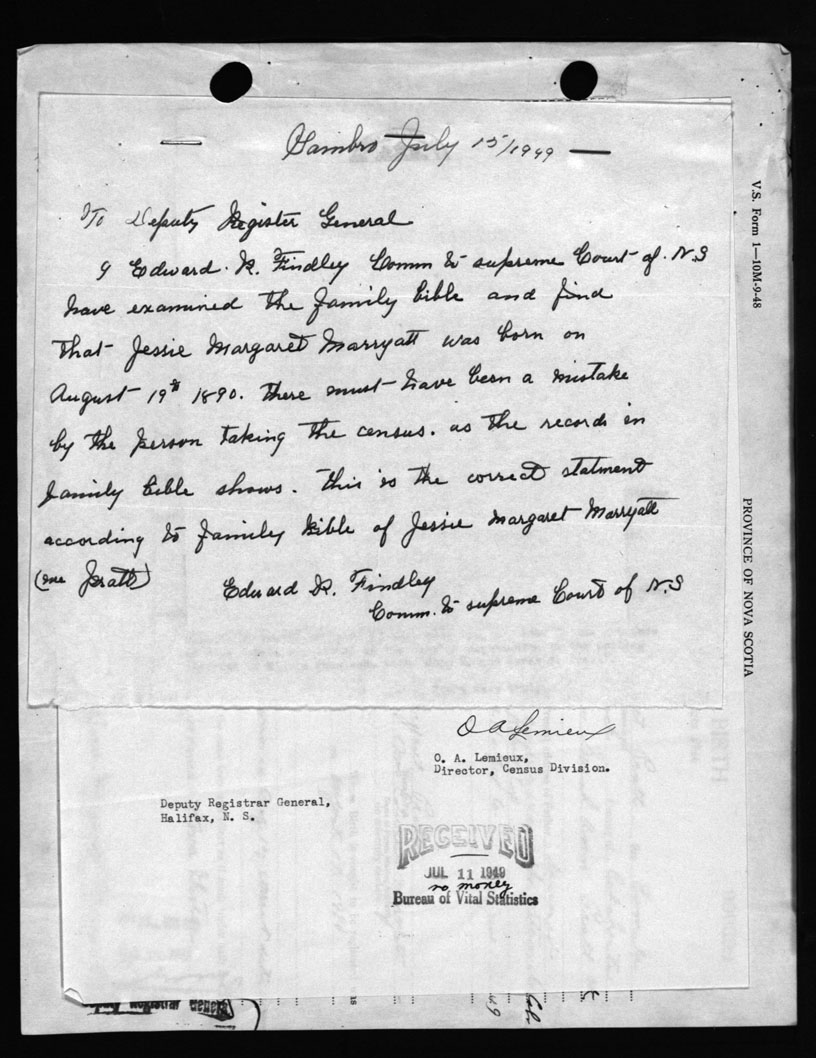 Sambro July 15/1949
To Deputy Register General
I Edward R. Findley Comm to supreme Court of N.S
have examined the family bible and find
that Jessie Margaret Marryatt was born on
August 19th 1890. there must have been a mistake
by the person taking the census. as the records in
family bible shows. this is the correct statment
according to family Bible of Jessie Margaret Marryatt
Edward R. Findley
Comm. to supreme Court of N.S
V.S. Form 1—10M-9-48
PROVINCE OF NOVA SCOTIA
O A Lemieux
O. A. Lemieux,
Director, Census Division.
Deputy Registrar General,
Halifax, N. S.
RECEIVED
JUL 11 1949
no money
Bureau of Vital Statistics
Deputy Registrar General